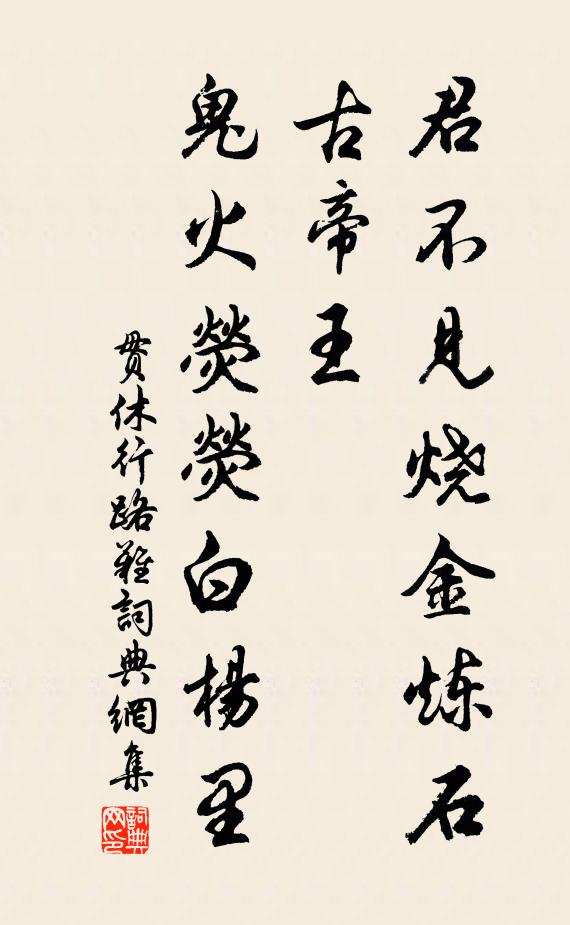 君不见烧金炼石
古帝王
鬼火荧荧白楊里
贯休行路難詞典網集
詞典
网印